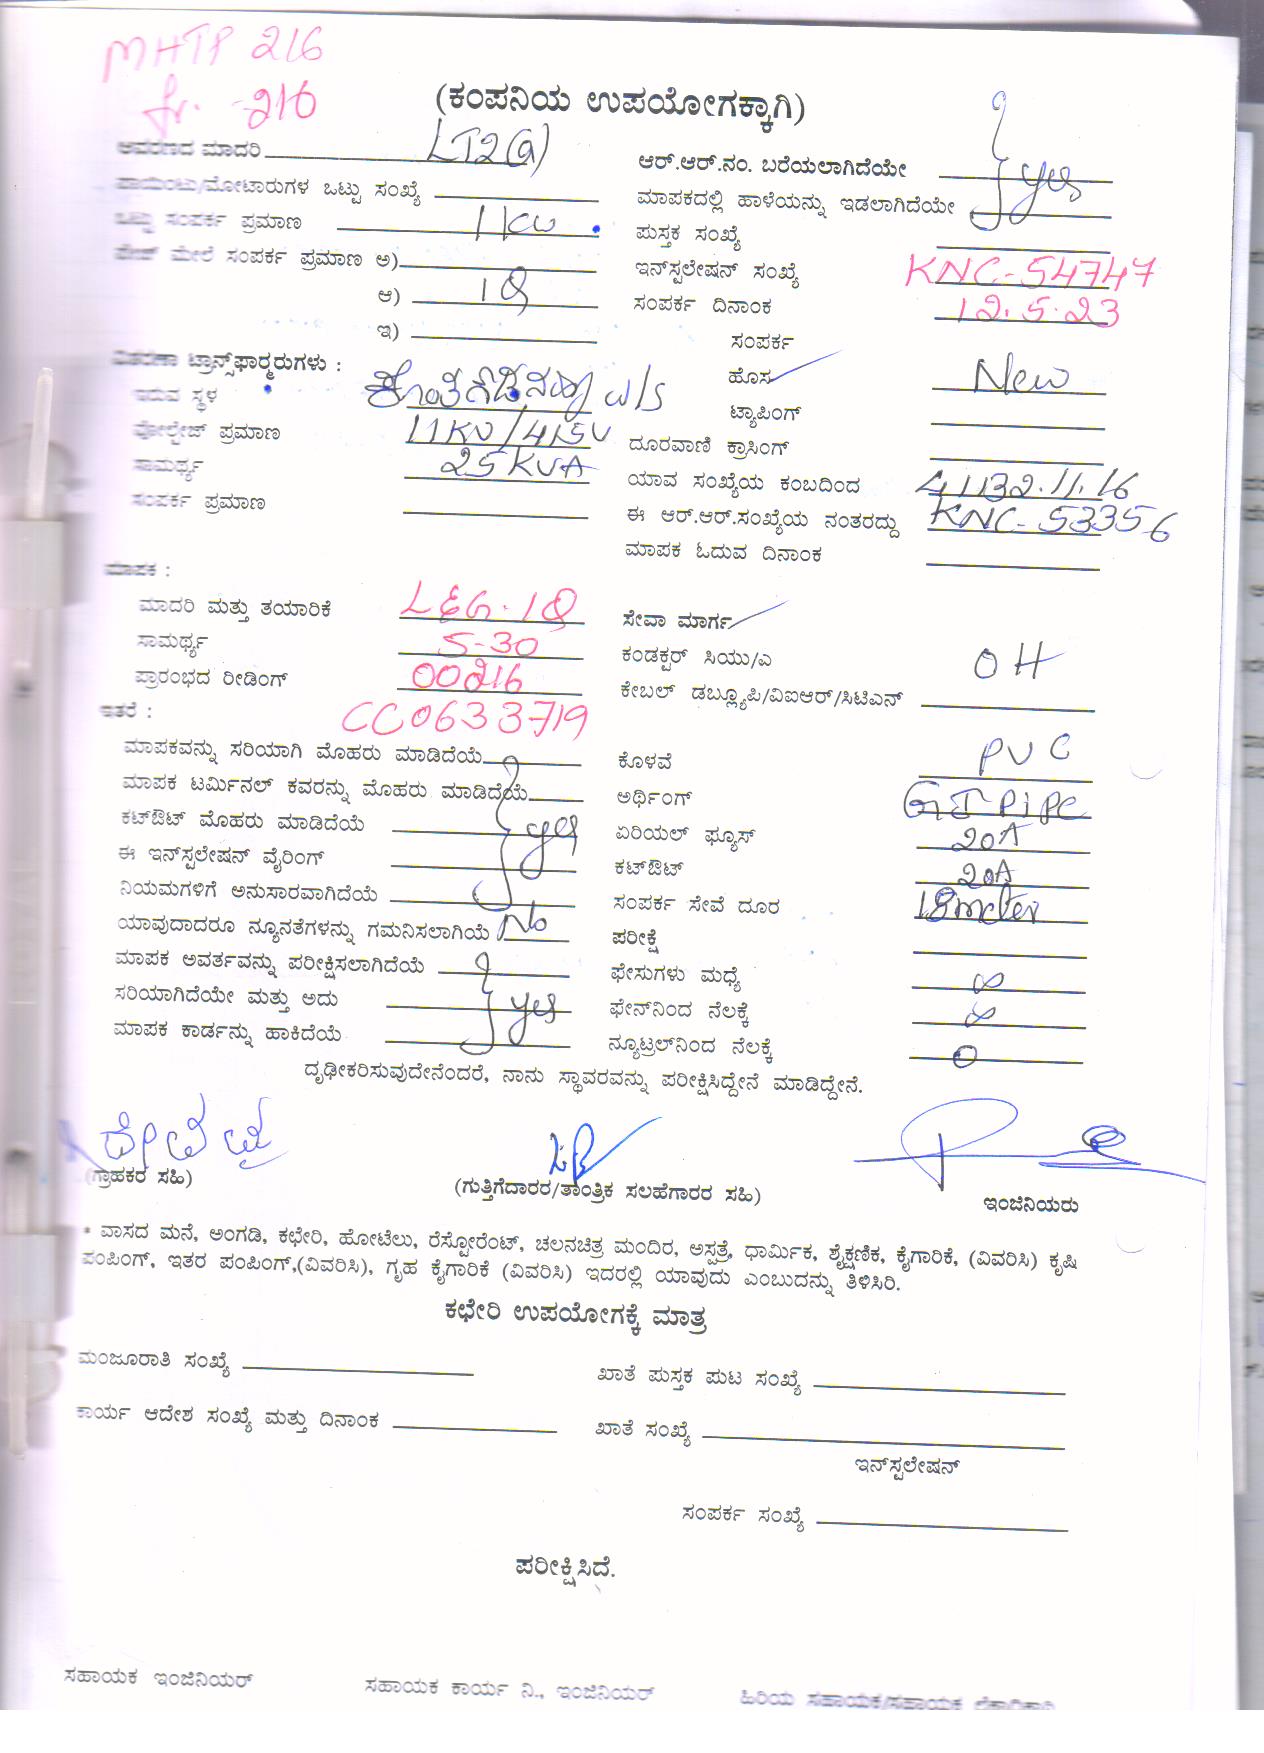 MHTP 216
fr. - 216
(ಕಂಪನಿಯ ಉಪಯೋಗಕ್ಕಾಗಿ)
ಆವರಣದ ಮಾದರಿ LT2(a)
ಪಾಯಿಂಟು/ಮೋಟಾರುಗಳ ಒಟ್ಟು ಸಂಖ್ಯೆ
ಒಟ್ಟು ಸಂಪರ್ಕ ಪ್ರಮಾಣ 1 KW
ಮೇಲೆ ಸಂಪರ್ಕ ಪ್ರಮಾಣ ಅ)
ಆ) 1 Ø
ಇ)
ವಿತರಣಾ ಟ್ರಾನ್ಸ್‌ಫಾರ್ಮರುಗಳು :
ಇರುವ ಸ್ಥಳ w/s
ವೋಲ್ಟೇಜ್ ಪ್ರಮಾಣ 11KV/415V
ಸಾಮರ್ಥ್ಯ 25 KVA
ಸಂಪರ್ಕ ಪ್ರಮಾಣ
ಮಾಪಕ :
ಮಾದರಿ ಮತ್ತು ತಯಾರಿಕೆ L&G. 1Ø
ಸಾಮರ್ಥ್ಯ 5-30
ಪ್ರಾರಂಭದ ರೀಡಿಂಗ್ 00216
ಇತರೆ : CC0633719
ಮಾಪಕವನ್ನು ಸರಿಯಾಗಿ ಮೊಹರು ಮಾಡಿದೆಯೆ
ಮಾಪಕ ಟರ್ಮಿನಲ್ ಕವರನ್ನು ಮೊಹರು ಮಾಡಿದೆಯೆ
ಕಟ್‌ಔಟ್ ಮೊಹರು ಮಾಡಿದೆಯೆ yes
ಈ ಇನ್‌ಸ್ಟಲೇಷನ್ ವೈರಿಂಗ್
ನಿಯಮಗಳಿಗೆ ಅನುಸಾರವಾಗಿದೆಯೆ
ಯಾವುದಾದರೂ ನ್ಯೂನತೆಗಳನ್ನು ಗಮನಿಸಲಾಗಿಯೆ No
ಮಾಪಕ ಅವರ್ತವನ್ನು ಪರೀಕ್ಷಿಸಲಾಗಿದೆಯೆ
ಸರಿಯಾಗಿದೆಯೇ ಮತ್ತು ಅದು yes
ಮಾಪಕ ಕಾರ್ಡನ್ನು ಹಾಕಿದೆಯೆ
ಆರ್.ಆರ್.ನಂ. ಬರೆಯಲಾಗಿದೆಯೇ yes
ಮಾಪಕದಲ್ಲಿ ಹಾಳೆಯನ್ನು ಇಡಲಾಗಿದೆಯೇ
ಪುಸ್ತಕ ಸಂಖ್ಯೆ
ಇನ್‌ಸ್ಟಲೇಷನ್ ಸಂಖ್ಯೆ KNC-54747
ಸಂಪರ್ಕ ದಿನಾಂಕ 12.5.23
ಸಂಪರ್ಕ
ಹೊಸ New
ಟ್ಯಾಪಿಂಗ್
ದೂರವಾಣಿ ಕ್ರಾಸಿಂಗ್
ಯಾವ ಸಂಖ್ಯೆಯ ಕಂಬದಿಂದ 41132.11.16
ಈ ಆರ್.ಆರ್.ಸಂಖ್ಯೆಯ ನಂತರದ್ದು KNC-53356
ಮಾಪಕ ಓದುವ ದಿನಾಂಕ
ಸೇವಾ ಮಾರ್ಗ
ಕಂಡಕ್ಟರ್ ಸಿಯು/ಎ OH
ಕೇಬಲ್ ಡಬ್ಲ್ಯೂಪಿ/ವಿಐಆರ್/ಸಿಟಿಎನ್
ಕೊಳವೆ PVC
ಅರ್ಥಿಂಗ್ GI Pipe
ಏರಿಯಲ್ ಫ್ಯೂಸ್ 20A
ಕಟ್‌ಔಟ್ 20A
ಸಂಪರ್ಕ ಸೇವೆ ದೂರ 18meter
ಪರೀಕ್ಷೆ
ಫೇಸುಗಳು ಮಧ್ಯೆ ∞
ಫೇನ್‌ನಿಂದ ನೆಲಕ್ಕೆ ∞
ನ್ಯೂಟ್ರಲ್‌ನಿಂದ ನೆಲಕ್ಕೆ 0
ದೃಢೀಕರಿಸುವುದೇನೆಂದರೆ, ನಾನು ಸ್ಥಾವರವನ್ನು ಪರೀಕ್ಷಿಸಿದ್ದೇನೆ ಮಾಡಿದ್ದೇನೆ.
(ಗ್ರಾಹಕರ ಸಹಿ)
(ಗುತ್ತಿಗೆದಾರರ/ತಾಂತ್ರಿಕ ಸಲಹೆಗಾರರ ಸಹಿ)
ಇಂಜಿನಿಯರು
* ವಾಸದ ಮನೆ, ಅಂಗಡಿ, ಕಛೇರಿ, ಹೋಟೆಲು, ರೆಸ್ಟೋರೆಂಟ್, ಚಲನಚಿತ್ರ ಮಂದಿರ, ಅಸ್ಪತ್ರೆ, ಧಾರ್ಮಿಕ, ಶೈಕ್ಷಣಿಕ, ಕೈಗಾರಿಕೆ, (ವಿವರಿಸಿ) ಕೃಷಿ
ಪಂಪಿಂಗ್, ಇತರ ಪಂಪಿಂಗ್,(ವಿವರಿಸಿ), ಗೃಹ ಕೈಗಾರಿಕೆ (ವಿವರಿಸಿ) ಇದರಲ್ಲಿ ಯಾವುದು ಎಂಬುದನ್ನು ತಿಳಿಸಿರಿ.
ಕಛೇರಿ ಉಪಯೋಗಕ್ಕೆ ಮಾತ್ರ
ಮಂಜೂರಾತಿ ಸಂಖ್ಯೆ
ಖಾತೆ ಪುಸ್ತಕ ಪುಟ ಸಂಖ್ಯೆ
ಕಾರ್ಯ ಆದೇಶ ಸಂಖ್ಯೆ ಮತ್ತು ದಿನಾಂಕ
ಖಾತೆ ಸಂಖ್ಯೆ
ಇನ್‌ಸ್ಟಲೇಷನ್
ಸಂಪರ್ಕ ಸಂಖ್ಯೆ
ಪರೀಕ್ಷಿಸಿದೆ.
ಸಹಾಯಕ ಇಂಜಿನಿಯರ್
ಸಹಾಯಕ ಕಾರ್ಯ ನಿ., ಇಂಜಿನಿಯರ್
ಹಿರಿಯ ಸಹಾಯಕ/ಸಹಾಯಕ